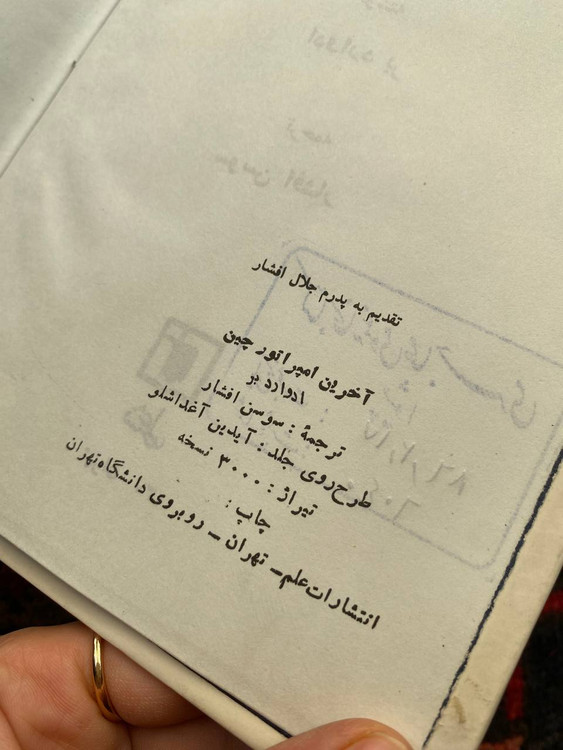 تقدیم به پدرم جلال افشار
آخرین امپراتور چین
ادوارد بر
ترجمهٔ : سوسن افشار
طرح روی جلد : آیدین آغداشلو
تیراژ : ۳۰۰۰ نسخه
چاپ :
انتشارات علم – تهران – روبروی دانشگاه تهران